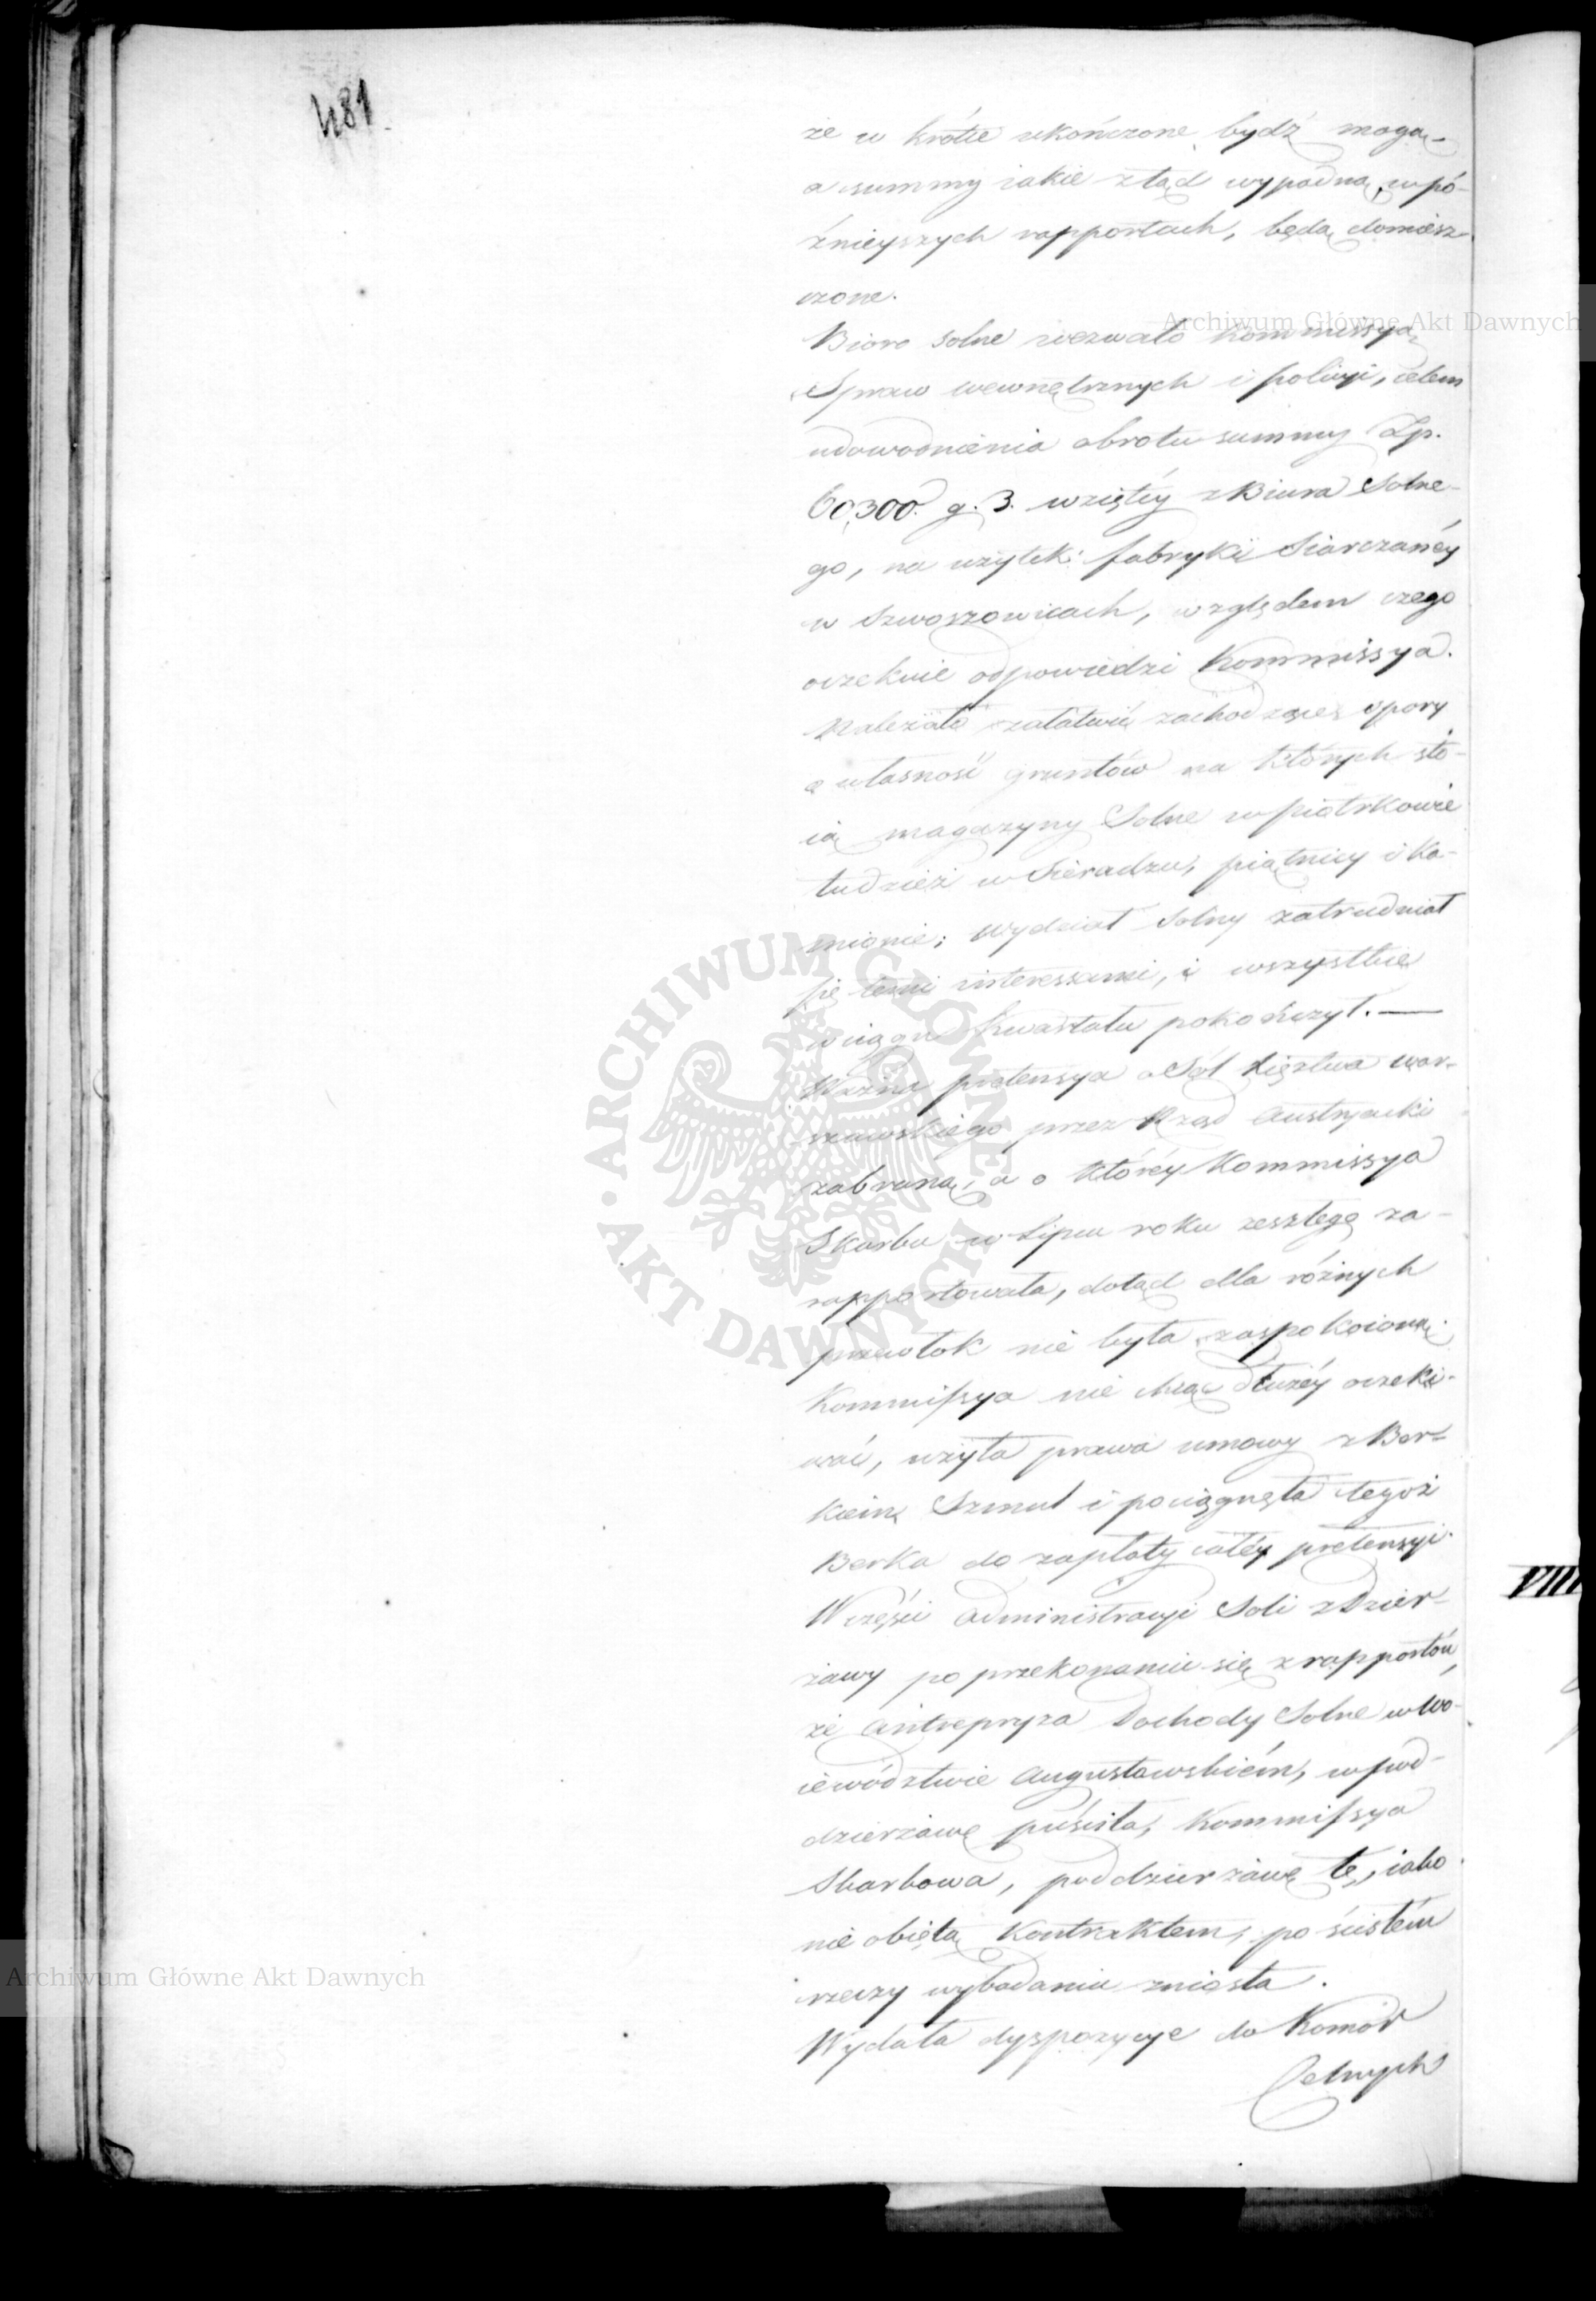 481
że w krótce ukończone bydź mogą
a summy iakie ztąd wypadną, w pó-
źnieyszych rapportach, będą domiesz-
czone.
Bioro Solne wezwało Kommissyą
Spraw wewnętrznych i policyi, celem
udowodnienia obrotu summy Zp.
60,300. g. 3. wziętéy z Biura Solne-
go, na użytek fabryki Siarczanéy
w Szwoszowicach, względem czego
oczekuie odpowiedzi Kommissya.
Należało załatwić zachodzące spory
o własność gruntów na których sto-
ią magazyny Solne w piotrkowie
tudzież w Sieradzu, piątnicy i Ka-
mionie; wydział Solny zatrudniał
się temi interessami, i wszystkie
w ciągu kwartału pokończył. —
Ważna pretensya o Sól Xięztwa war-
szawskiego przez Rząd Austryacki
zabraną, a o któréy Kommissya
Skarbu w Lipcu roku zeszłego za-
rapportowała, dotąd dla różnych
przewłok nie była zaspokoioną.
Kommissya nie chcąc dłużéy oczeki-
wać, użyła prawa umowy z Ber-
kiem Szmul i pociągnęła tegoż
Berka do zapłaty całéy pretensyi.
W części administracyi Soli z Dzier-
żawy po przekonaniu się z rapportów,
że Antrepryza Dochody Solne w Wo-
iewództwie Augustowskiém, w pod-
dzierżawę puściła, Kommissya
Skarbowa, poddzierżawę tę, iako
nie obiętą Kontraktem, po ścisłém
rzeczy wybadaniu zniosła.
Wydała dyspozycye do Komór
Celnych
VIII
Archiwum Główne Akt Dawnych
Archiwum Główne Akt Dawnych
ARCHIWUM GŁÓWNE · AKT DAWNYCH ·